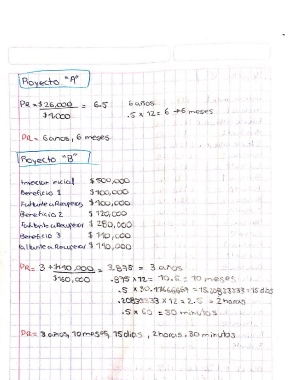 Proyecto "A"
PR = $26,000 = 6.5 6 años
.5 x 12 = 6 → 6 meses
PR = 6 años, 6 meses
Proyecto "B"
Inversion inicial $500,000
Beneficio 1 $100,000
Faltante a Recuperar
Beneficio 2 $120,000
Faltante a Recuperar $280,000
Beneficio 3 $140,000
Faltante a Recuperar $140,000
PR = 3 + $140,000 = 3.875 = 3 años
$160,000 .875 x 12 = 10.5 = 10 meses
.5 x 30.41666667 = 15.20833333 = 15 dias
.20833333 x 12 = 2.5 = 2 horas
.5 x 60 = 30 minutos
PR = 3 años, 10 meses, 15 dias, 2 horas, 30 minutos